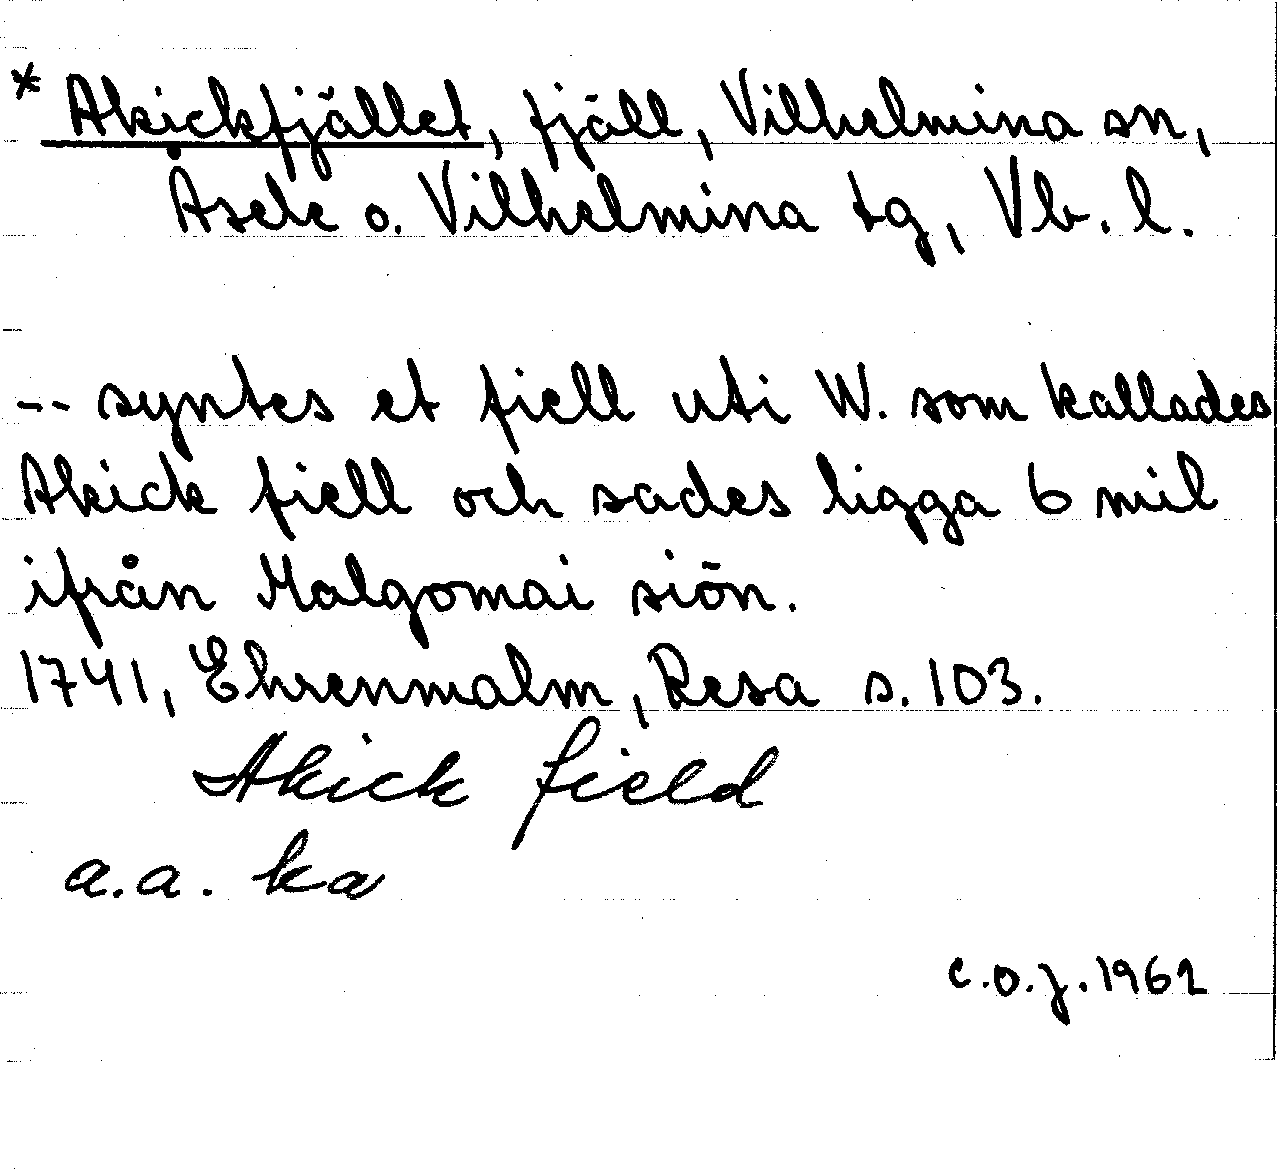 * Akickfjället, fjäll, Vilhelmina sn,
Åsele o. Vilhelmina tg, Vb. l.
-- syntes et fiell uti W. som kallades
Akick fiell och sades ligga 6 mil
ifrån Malgomai siön.
1741, Ehrenmalm, Resa s. 103.
Akick field
a.a. ka
C.O.J. 1962